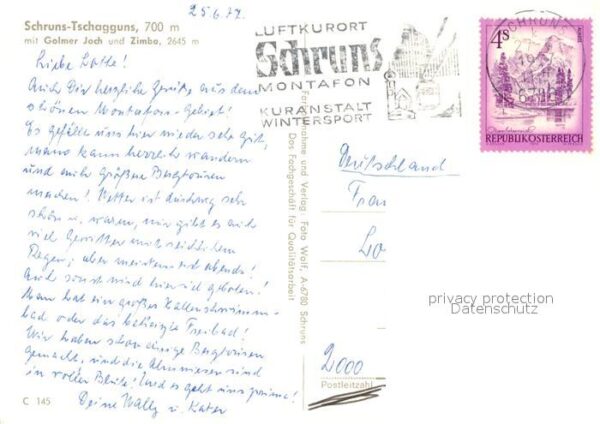 25.6.77.
Schruns-Tschagguns, 700 m
mit Golmer Joch und Zimba, 2645 m
Liebe Lotte!
Auch Dir herzliche Grüße aus dem
schönen Montafon-Gebiet!
Es gefällt uns hier wieder sehr gut,
mann kann herrlich wandern
und auch größere Bergtouren
machen! Wetter ist durchweg sehr
schön u. warm, nur gibt es auch
viel Gewitter mit reichlichem
Regen, aber meistens erst abends!
Auch sonst wird hier viel geboten!
Man hat ein großes Hallenschwimm-
bad oder das beheizte Freibad!
Wir haben schon einige Bergtouren
gemacht, und die Almwiesen sind
in voller Blüte! Und es geht uns prima!
Deine Wally u. Kater
C 145
LUFTKURORT
Schruns
MONTAFON
KURANSTALT
WINTERSPORT
SCHRUNS
4S
REPUBLIK ÖSTERREICH
Aufnahme und Verlag: Foto Wolf, A-6780 Schruns
Das Fachgeschäft für Qualitätsarbeit
Deutschland
Frau
Lo
privacy protection
Datenschutz
2000
Postleitzahl